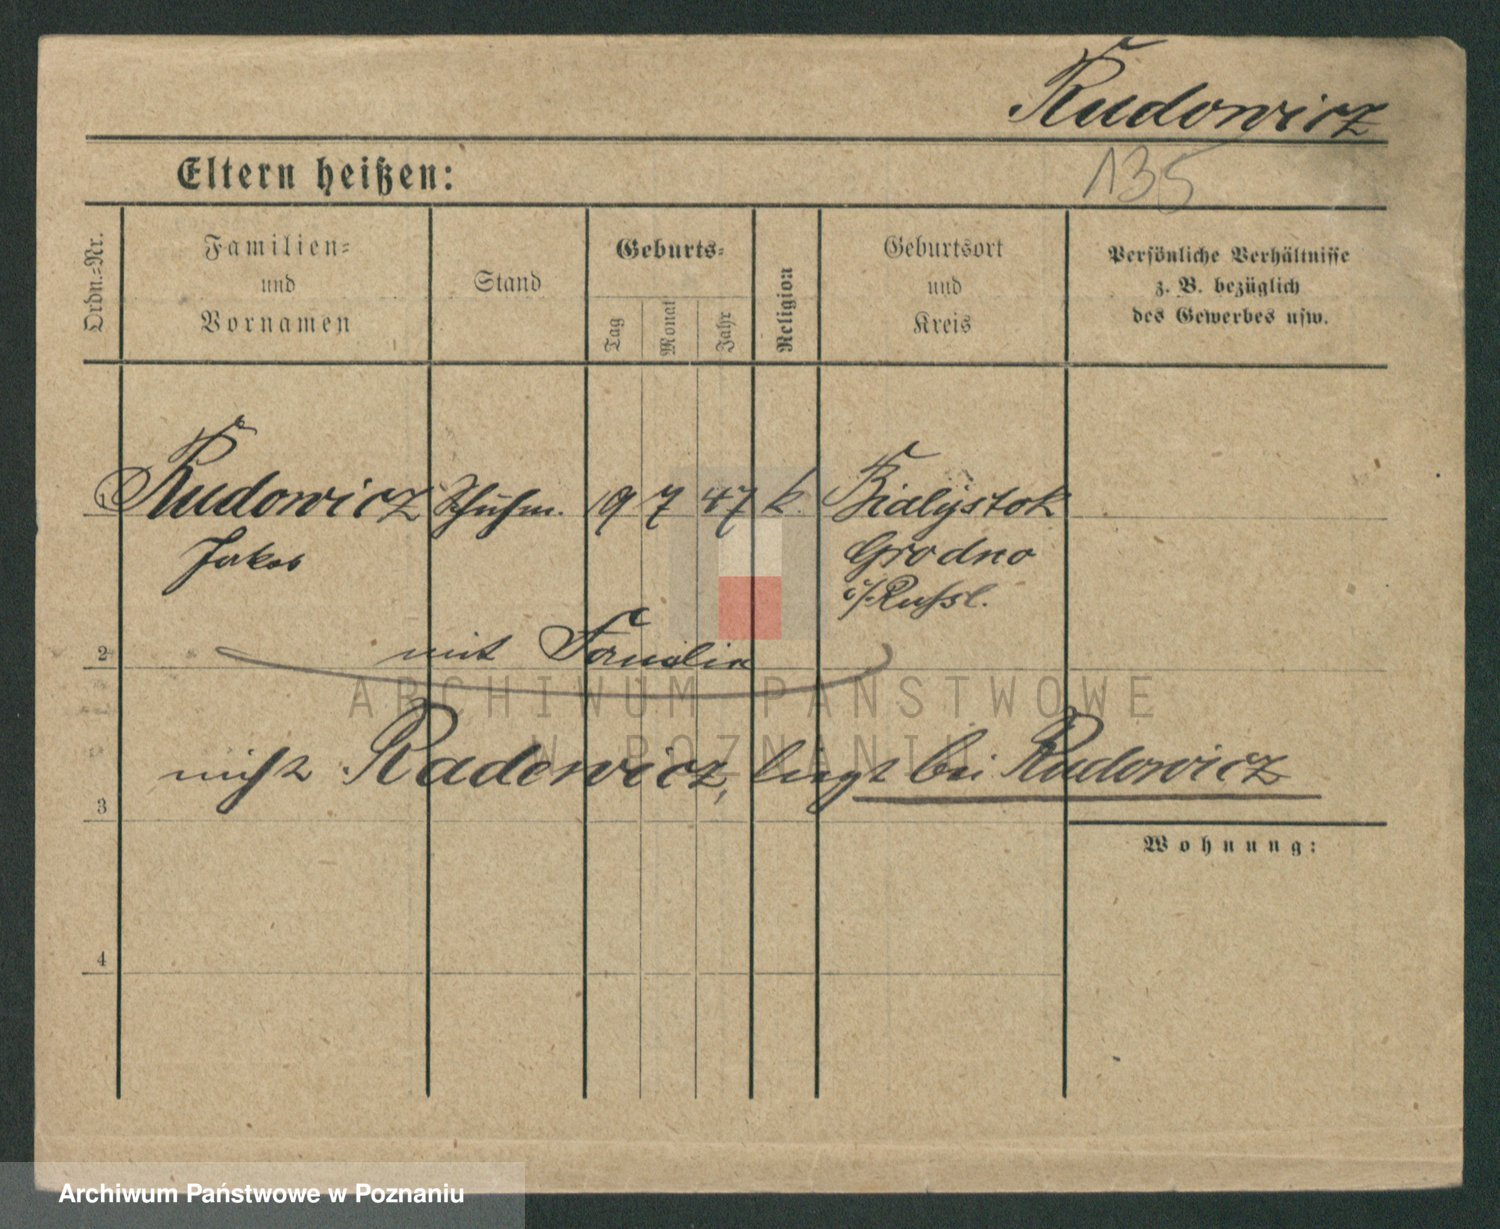 Rudowicz
135
Eltern heißen:
Ordn.=Nr.
Familien=
und
Vornamen
Stand
Geburts=
Tag
Monat
Jahr
Religion
Geburtsort
und
Kreis
Persönliche Verhältnisse
z. B. bezüglich
des Gewerbes usw.
Rudowicz Schuhm. 19 7 47 k. Bialystok
Jakob Grodno
i/Russl.
2 mit Familie
nicht Radewicz, liegt bei Rudowicz
3
Wohnung:
4
ARCHIWUM PAŃSTWOWE
W POZNANIU
Archiwum Państwowe w Poznaniu